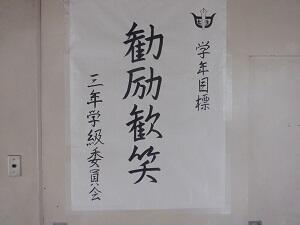 学年目標
勧励歓笑
三年学級委員会